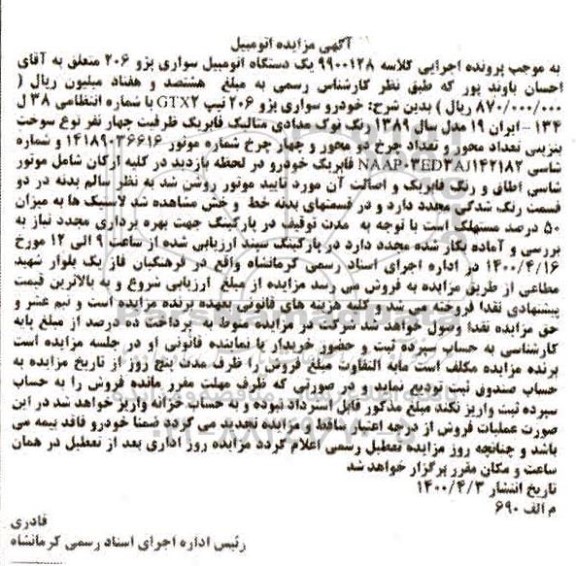 آگهی مزایده اتومبیل
به موجب پرونده اجرایی کلاسه ۹۹۰۰۱۲۸ یک دستگاه اتومبیل سواری پژو ۲۰۶ متعلق به آقای
احسان باوند پور که طبق نظر کارشناس رسمی به مبلغ هشتصد و هفتاد میلیون ریال (
۸۷۰/۰۰۰/۰۰۰ ریال ) بدین شرح: خودرو سواری پژو ۲۰۶ تیپ GTX۲ با شماره انتظامی ۳۸ ل
۱۳۴ - ایران ۱۹ مدل سال ۱۳۸۹ رنگ نوک مدادی متالیک فابریک ظرفیت چهار نفر نوع سوخت
بنزینی تعداد محور و تعداد چرخ دو محور و چهار چرخ شماره موتور ۱۴۱۸۹۰۳۶۶۱۶ و شماره
شاسی NAAP۰۳ED۳AJ۱۴۲۱۸۲ فابریک خودرو در لحظه بازدید در کلیه ارکان شامل موتور
شاسی اطاق و رنگ فابریک و اصالت آن مورد تایید موتور روشن شد به نظر سالم بدنه در دو
قسمت رنگ شدگی مجدد دارد و در قسمتهای بدنه خط و خش مشاهده شد لاستیک ها به میزان
۵۰ درصد مستهلک است با توجه به مدت توقیف در پارکینگ جهت بهره برداری مجدد نیاز به
بررسی و آماده بکار شده مجدد دارد در پارکینگ سپند ارزیابی شده از ساعت ۹ الی ۱۲ مورخ
۱۴۰۰/۴/۱۶ در اداره اجرای اسناد رسمی کرمانشاه واقع در فرهنگیان فاز یک بلوار شهید
مطاعی از طریق مزایده به فروش می رسد مزایده از مبلغ ارزیابی شروع و به بالاترین قیمت
پیشنهادی نقدا فروخته می شود. کلیه هزینه های قانونی بعهده برنده مزایده است و نیم عشر و
حق مزایده نقدا وصول خواهد شد شرکت در مزایده منوط به پرداخت ده درصد از مبلغ پایه
کارشناسی به حساب سپرده ثبت و حضور خریدار یا نماینده قانونی او در جلسه مزایده است
برنده مزایده مکلف است مابه التفاوت مبلغ فروش را ظرف مدت پنج روز از تاریخ مزایده به
حساب صندوق ثبت تودیع نماید و در صورتی که ظرف مهلت مقرر مانده فروش را به حساب
سپرده ثبت واریز نکند مبلغ مذکور قابل استرداد نبوده و به حساب خزانه واریز خواهد شد در این
صورت عملیات فروش از درجه اعتبار ساقط و مزایده تجدید می گردد ضمنا خودرو فاقد بیمه می
باشد و چنانچه روز مزایده تعطیل رسمی اعلام گردد مزایده روز اداری بعد از تعطیل در همان
ساعت و مکان مقرر برگزار خواهد شد
تاریخ انتشار ۱۴۰۰/۴/۳
م الف ۶۹۰
قادری
رئیس اداره اجرای اسناد رسمی کرمانشاه